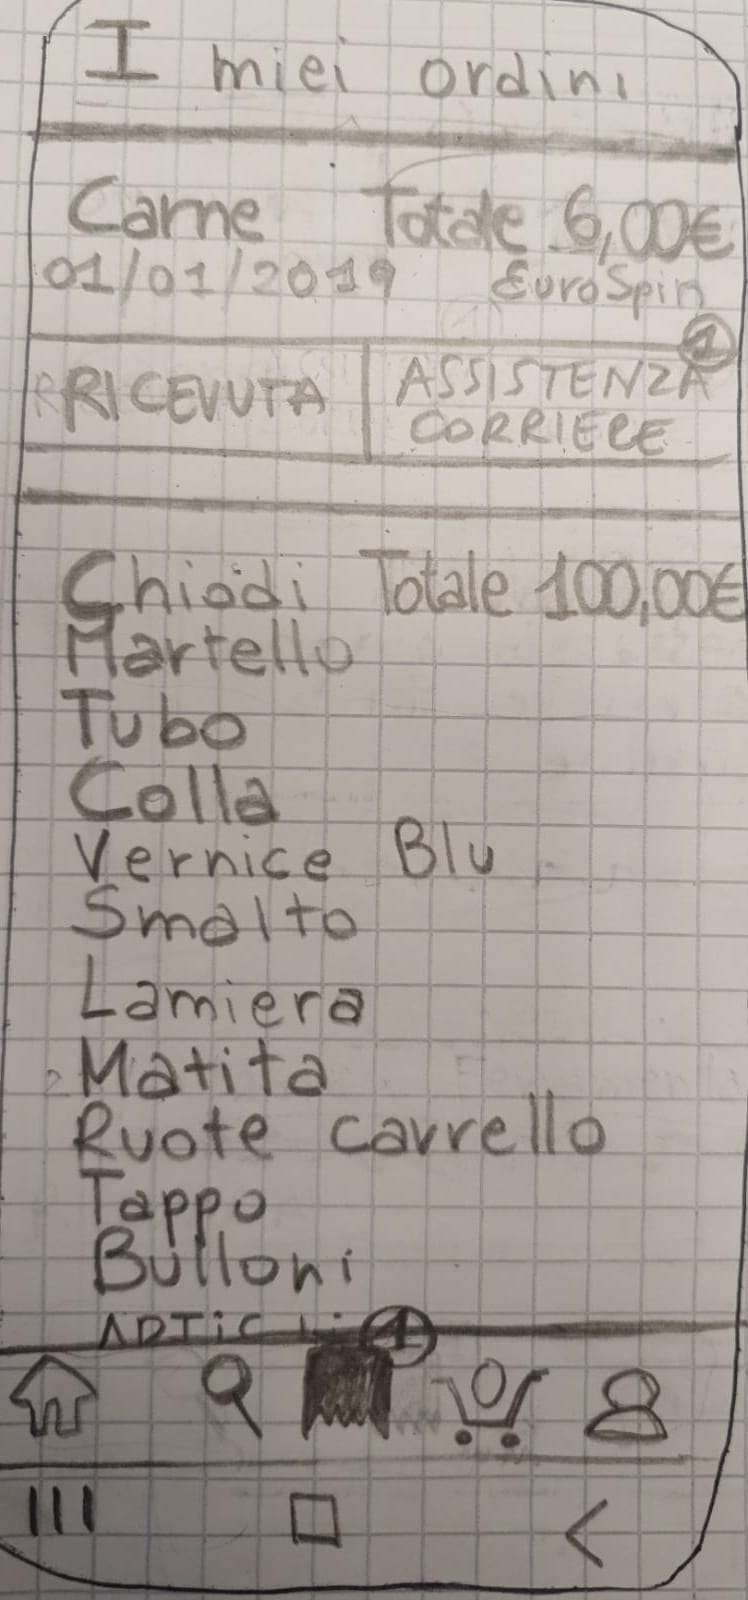 I miei ordini
Carne Totale 6,00€
01/01/2019 EuroSpin
1
RICEVUTA ASSISTENZA
CORRIERE
Chiodi Totale 100,00€
Martello
Tubo
Colla
Vernice Blu
Smalto
Lamiera
Matita
Ruote carrello
Tappo
Bulloni
1
0